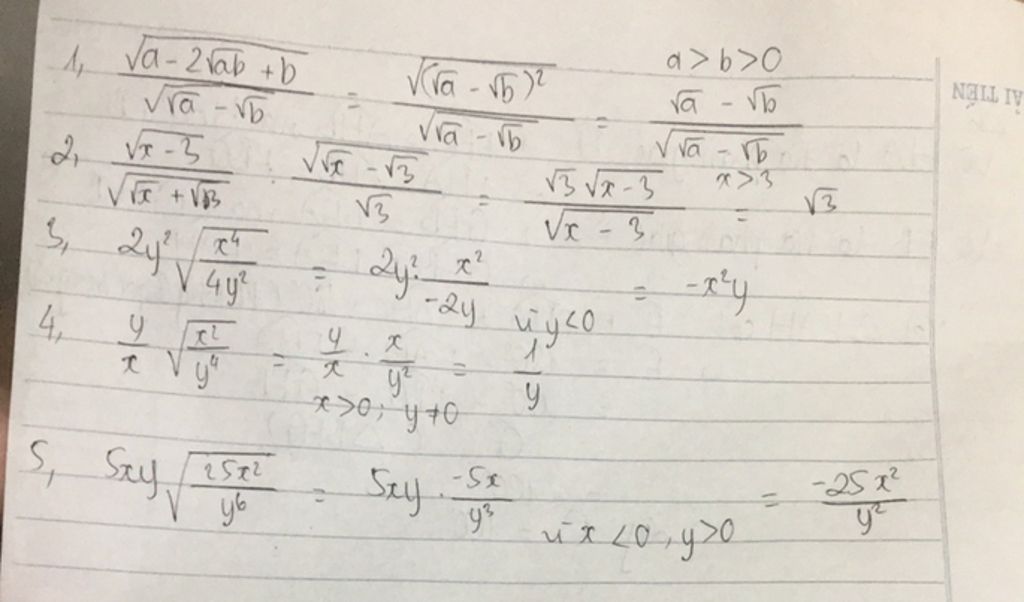 1, √(a - 2√ab + b) / √(√a - √b) = √((√a - √b)²) / √(√a - √b) = (√a - √b) / √(√a - √b) a > b > 0
2, √(x - 3) / √(√x + √3) · √(√x - √3) / √3 = √3 √(x - 3) / √(x - 3) = √3 x > 3
3, 2y² √(x⁴ / 4y²) = 2y² · x² / -2y = -x²y vì y < 0
4, y/x √(x² / y⁴) = y/x · x/y² = 1/y
x > 0; y ≠ 0
5, 5xy √(25x² / y⁶) = 5xy · -5x / y³ = -25x² / y²
vì x < 0, y > 0
ẢI TIẾN